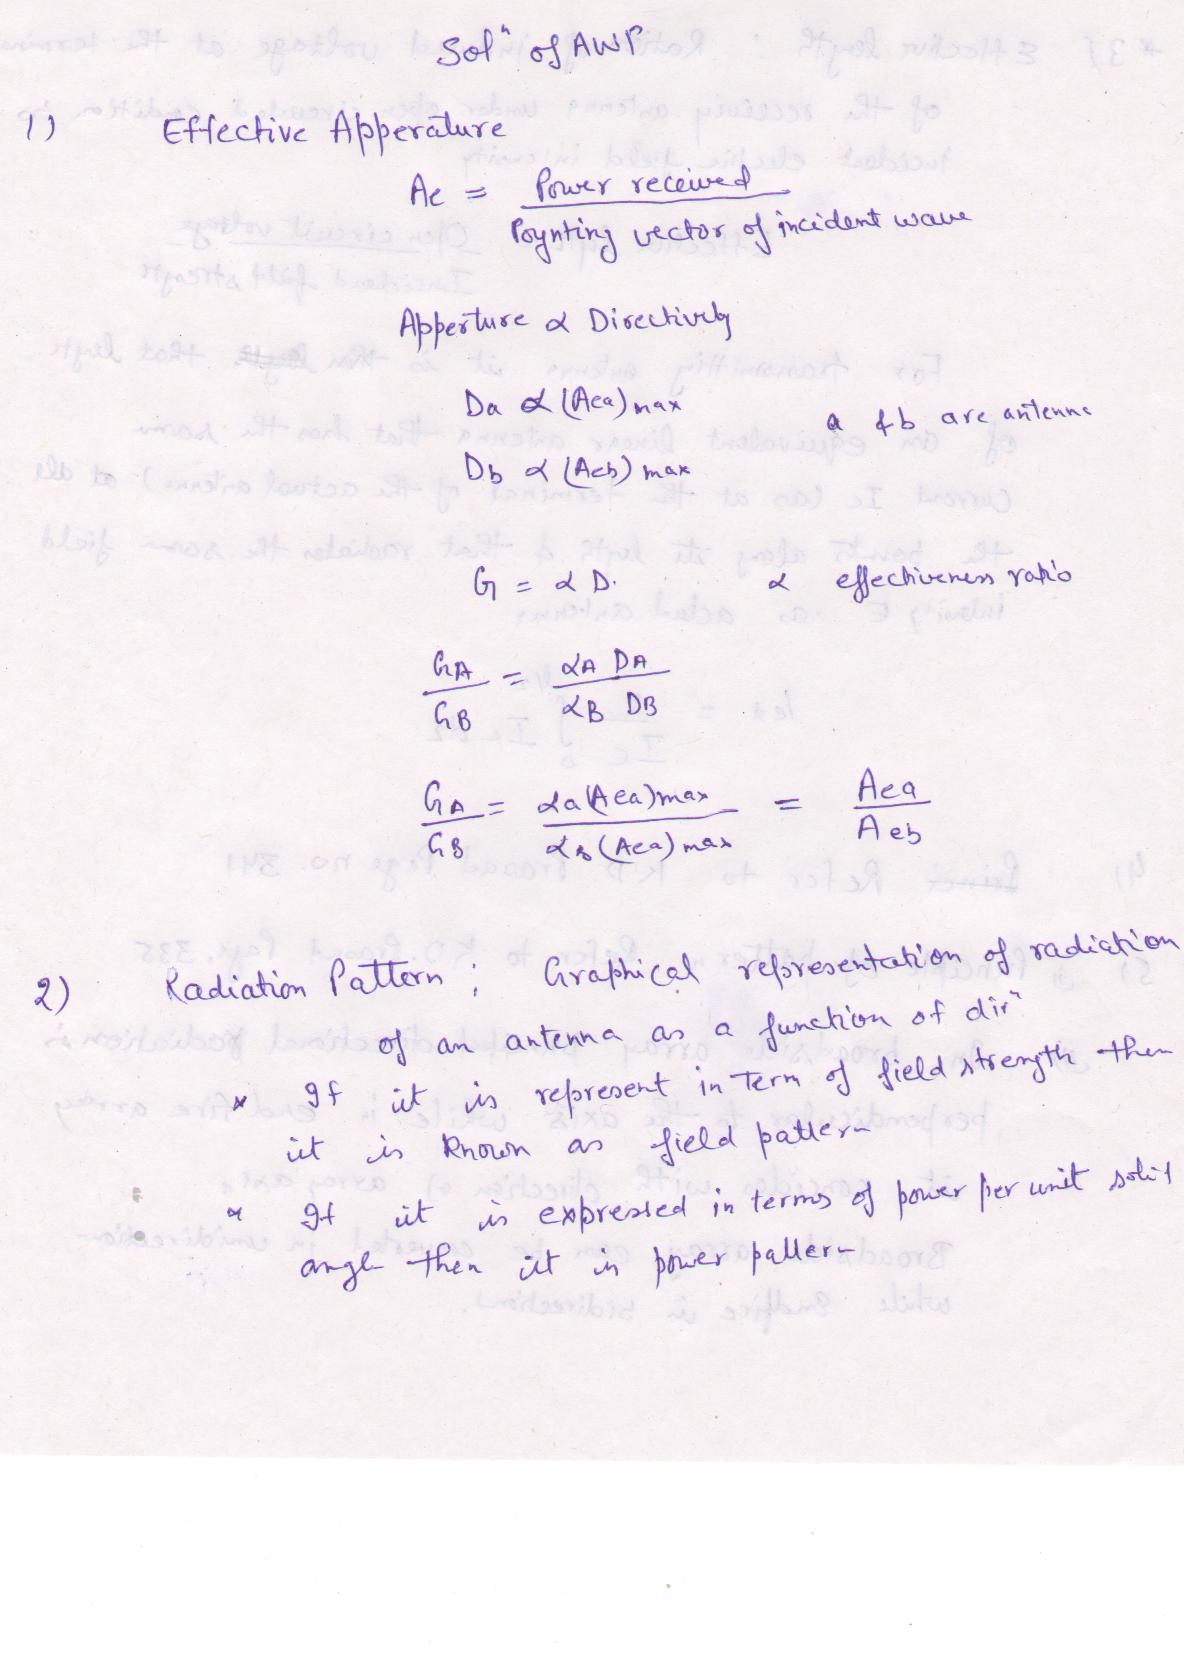 Solⁿ of AWP
1) Effective Apperature
Ae = Power received / Poynting vector of incident wave
Apperture α Directively
Da α (Aea) max
a & b are antenna
Db α (Aeb) max
G = α D. α effectiveness ratio
GA / GB = αA DA / αB DB
GA / GB = αa (Aea) max / αB (Aea) max = Aea / Aeb
2) Radiation Pattern ; Graphical representation of radiation
of an antenna as a function of dirⁿ
* If it is represent in term of field strength then
it is known as field pattern
* If it is expressed in terms of power per unit solid
angle then it is power pattern